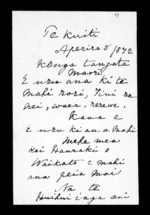 Te Kuiti
Aperira 5/1872
Konga tangata
Maori
E uru ana ki te
Mahi rori,
waea, rerewe.
Kaua e
E uru ki an a Mahi
Meke mea
Kei Hauraki
Waikato e mahi
ana peia mai
Na te